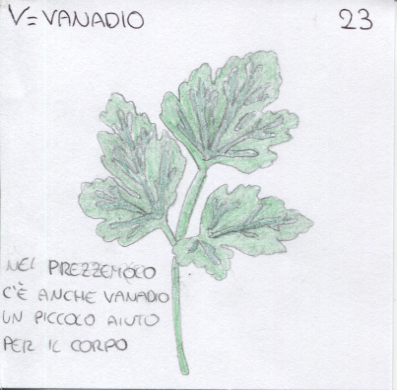 V=VANADIO
23
NEL PREZZEMOLO
C'È ANCHE VANADIO
UN PICCOLO AIUTO
PER IL CORPO